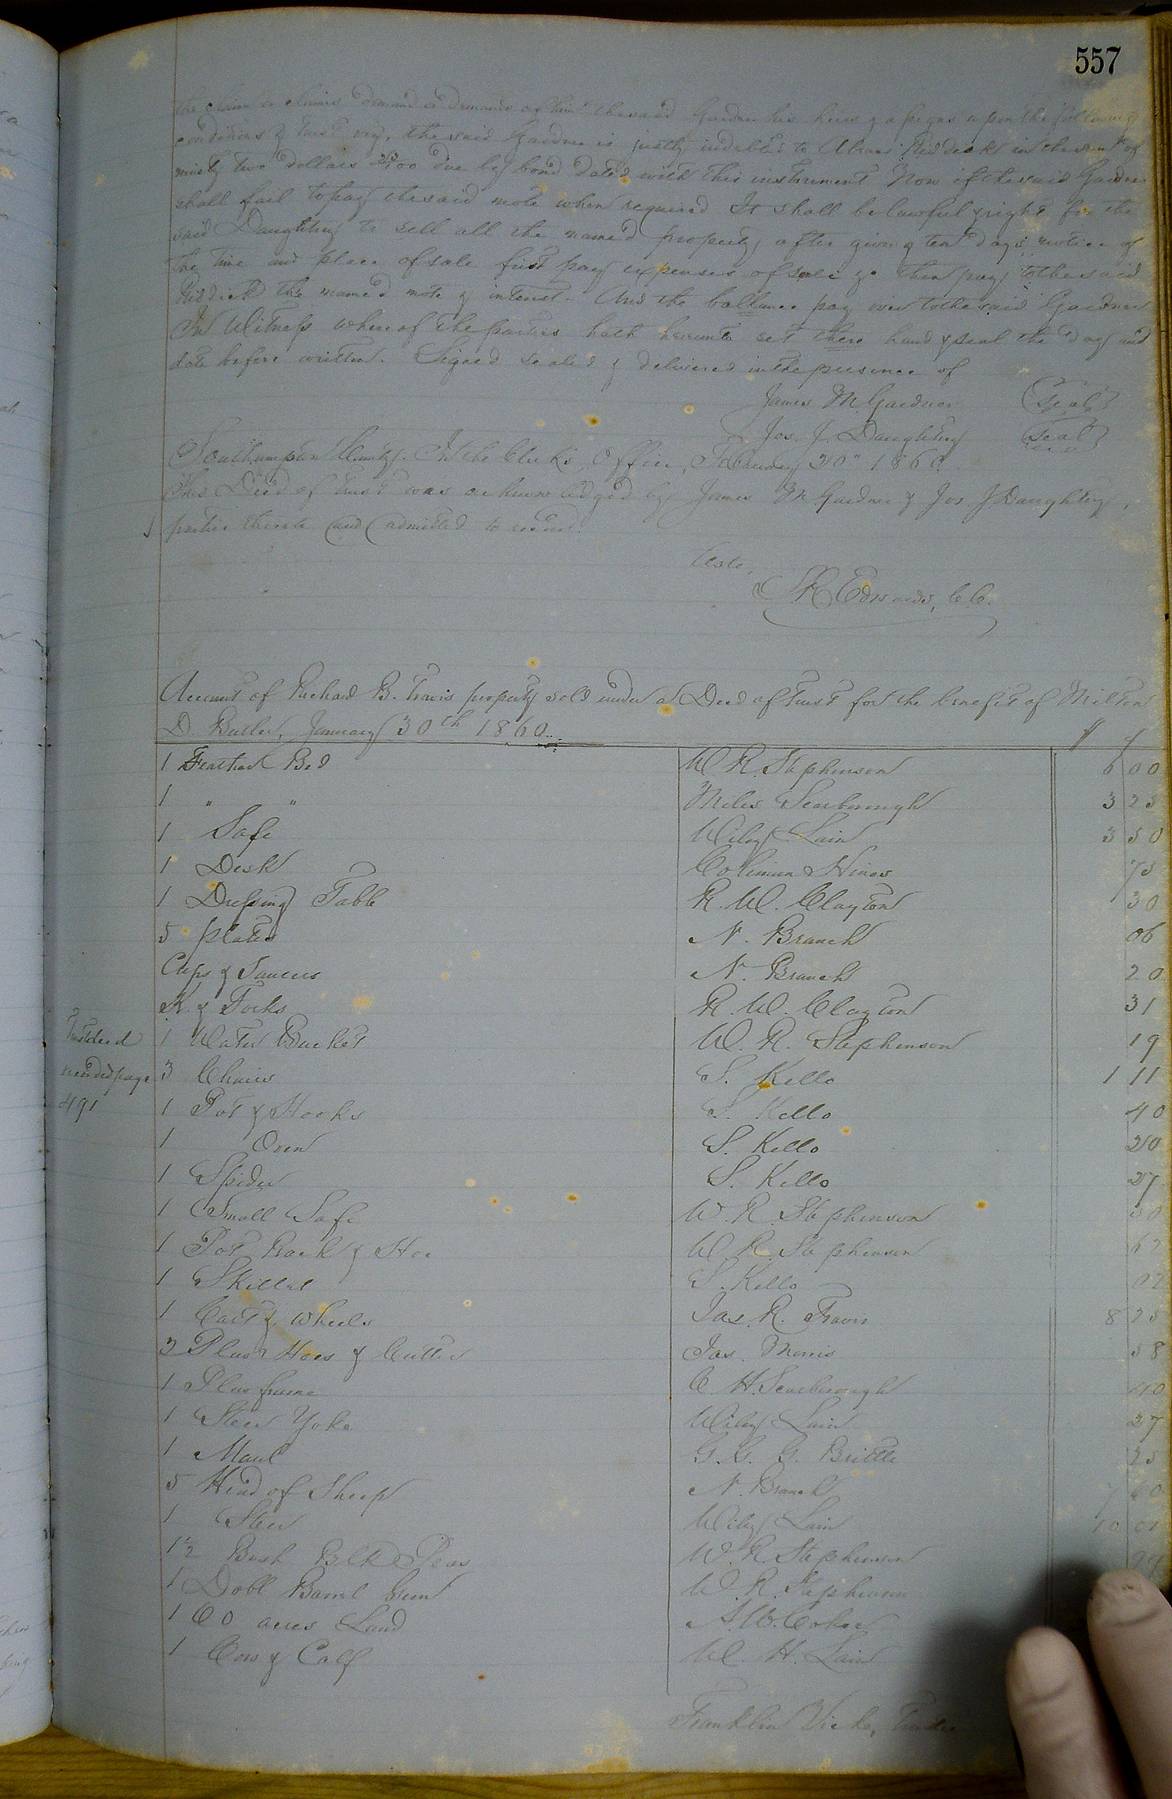 557
the claim or claims demand or demands of him the said Gardner his heirs & assigns upon the following
conditions & trust viz. the said Gardner is justly indebted to Abram Riddick in the sum of
ninety two dollars due by bond dated with this instrument Now if the said Gardner
shall fail to pay the said note when required It shall be lawful & right for the
said Daughtrey to sell all the named property after giving ten days notice of
the time and place of sale first pay expenses of sale & then pay to the said
Riddick the named note & interest. And the ballance pay over to the said Gardner
In Witness whereof the parties hath hereunto set there hand & seal the day and
date before written. Signed sealed & delivered in the presence of
James M Gardner (Seal)
Jos. J. Daughtrey (Seal)
Southampton County. In the Clerks Office, February 20th 1860.
This Deed of trust was acknowledged by James M Gardner & Jos J Daughtrey,
parties thereto and admitted to record.
Teste,
Edwards, C.C.
Account of Richard B. Travis property sold under a Deed of trust for the benefit of Milton
D. Butler, January 30th 1860.
1 Feather Bed W. R. Stephenson 6 00
1 " " Miles Scarborough 3 25
1 Safe Wiley Lain 3 50
1 Desk Coliman Hines 75
1 Dressing Table R. W. Clayton 30
5 plates N. Branch 06
Cups & Saucers N. Branch 20
K. & Forks R. W. Clayton 31
Trust deed
recorded page
491
1 Water Bucket W. R. Stephenson 19
3 Chairs S. Kello 1 11
1 Pot & Hooks S. Kello 40
1 Oven S. Kello 20
1 Spider S. Kello 27
1 Small Safe W. R. Stephenson 50
1 Pot Rack & Hoe W R Stephenson 67
1 Skillet S. Kello 02
1 Cart & wheels Jas. R. Travis 8 25
3 Plow Hoes & Cutter Jas. Morris 58
1 Plow frame C. H. Scarborough 40
1 Steer Yoke Wiley Lain 27
1 Maul G. G. G. Brittle 25
5 Head of Sheep N. Branch 7 60
1 Steer Wiley Lain 10 01
1½ Bush Blk Peas W. R Stephenson
1 Dobl Barrel Gun W. R. Stephenson
160 acres Land
1 Cow & Calf W. H. Lain
Franklin Vick, Trustee